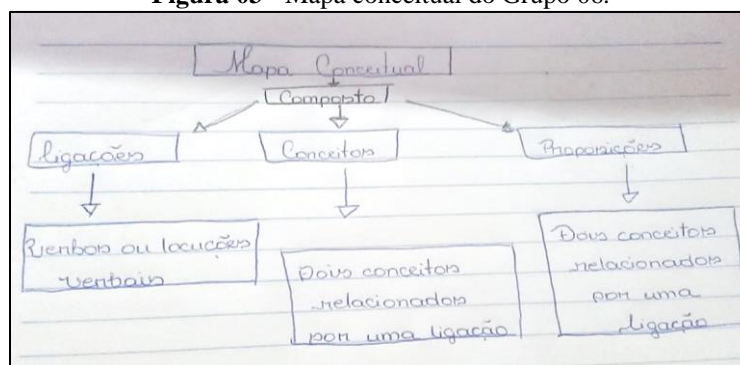 Mapa Conceitual
Composto
ligações
Conceitos
Proposições
Verbos ou locuções
verbais
Dois conceitos
relacionados
por uma ligação
Dois conceitos
relacionados
por uma
ligação